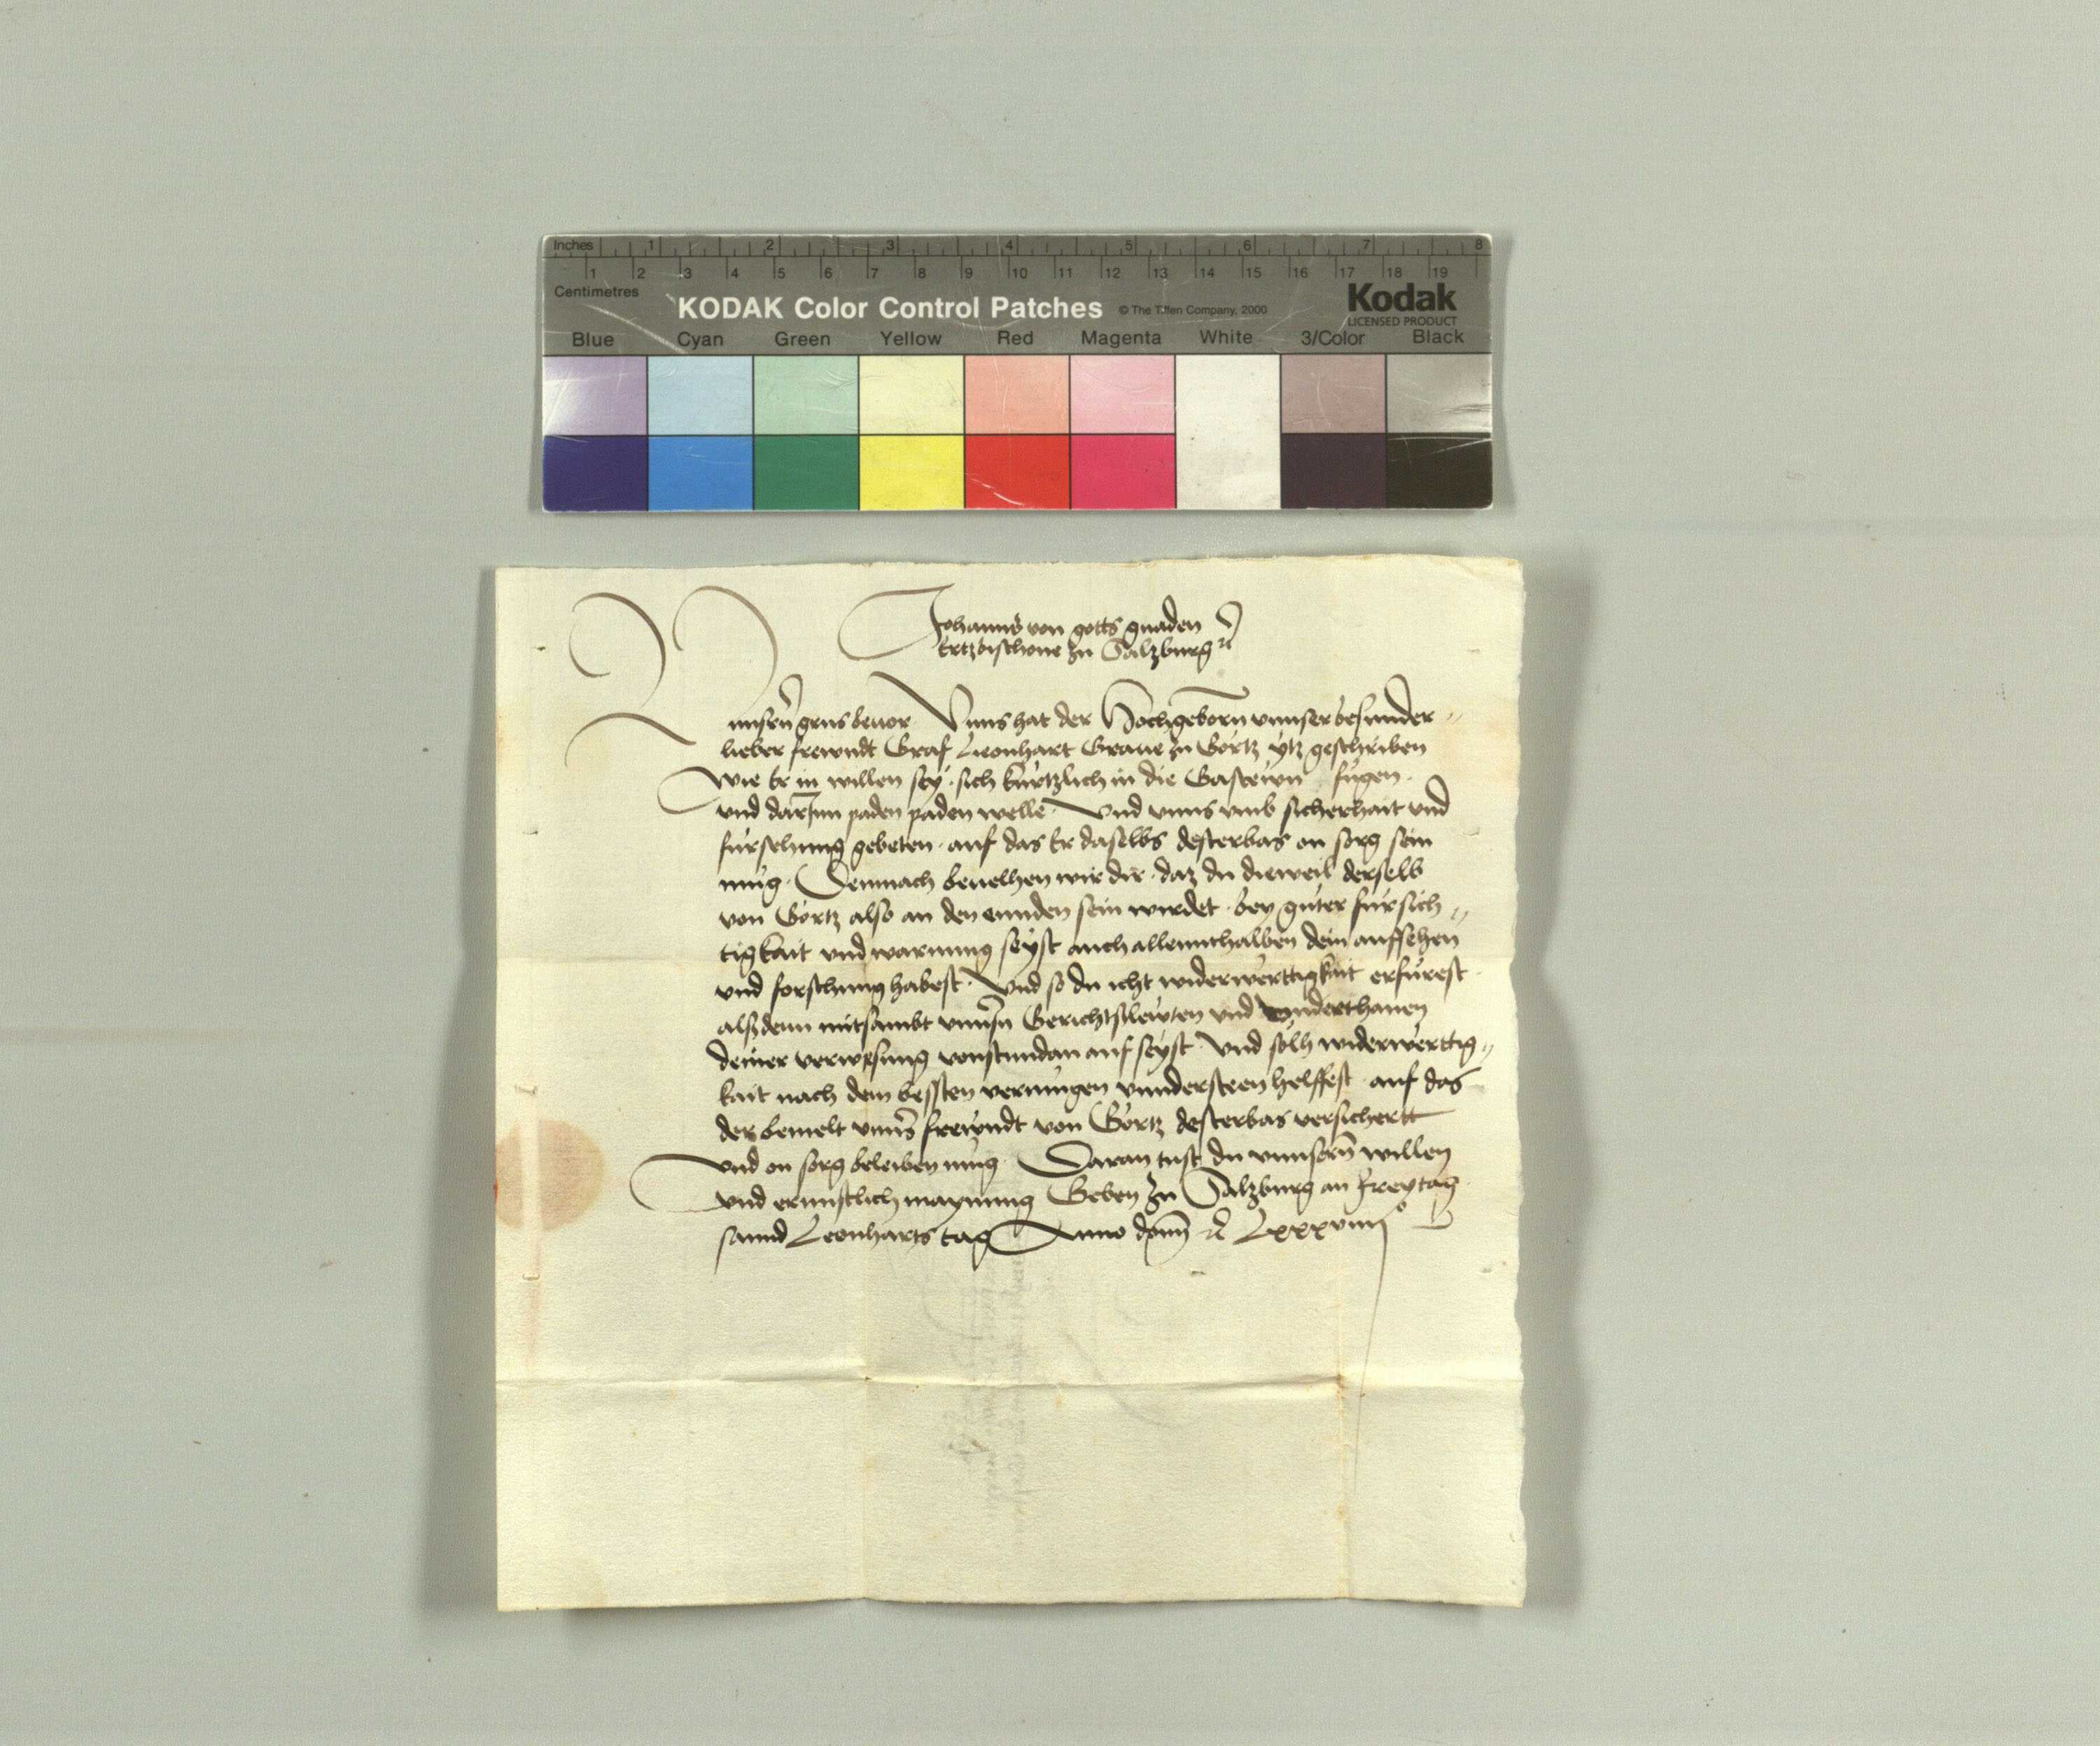 Inches 1 2 3 4 5 6 7 8
1 2 3 4 5 6 7 8 9 10 11 12 13 14 15 16 17 18 19
Centimetres
KODAK Color Control Patches © The Tiffen Company, 2000 Kodak
LICENSED PRODUCT
Blue Cyan Green Yellow Red Magenta White 3/Color Black
Johanns von gotts gnaden
Ertzbischoue zu Salzburg ꝛc
unsern̄ grus beuor Vnns hat der Hochgeborn vnnser besunder
lieber frewndt Graf Lieonhart Graue zu Görtz ytz geschriben
Wie Er in willen sey · sich kurtzlich in die Gastewn fugen ·
vnd darInn paden paden welle · Vnd vnns vmb sicherhait vnd
fürsehung gebeten · auf das Er daselbs desterbas on sorg sein
mug · Demnach beuelhen wir dir · daz du dieweil derselb
von Görtz also an den ennden sein wirdet · bey guter fürsich
tigkait vnd warnung seyst auch allennthalben dein aufsehen
vnd forschung habest · Vnd so du icht widerwerttigkait erfürest ·
alßdenn mitsambt vnnsn̄ Gerichtslewten vnd vnderthanen
deiner verwesung vonstundan auf seyst · Vnd solh widerwerttig
kait nach dem bessten vermugen vnndersteen helffest · auf das
der bemelt vnns̄ frewndt von Görtz desterbas versichertt
vnd on sorg beleiben mug · Daran tust du vnnsern̄ willen
vnd ernnstlich maynung Geben zu Salzburg an Freytag
sannd Leonharts tag Anno domī ꝛc Lxxxviiijo